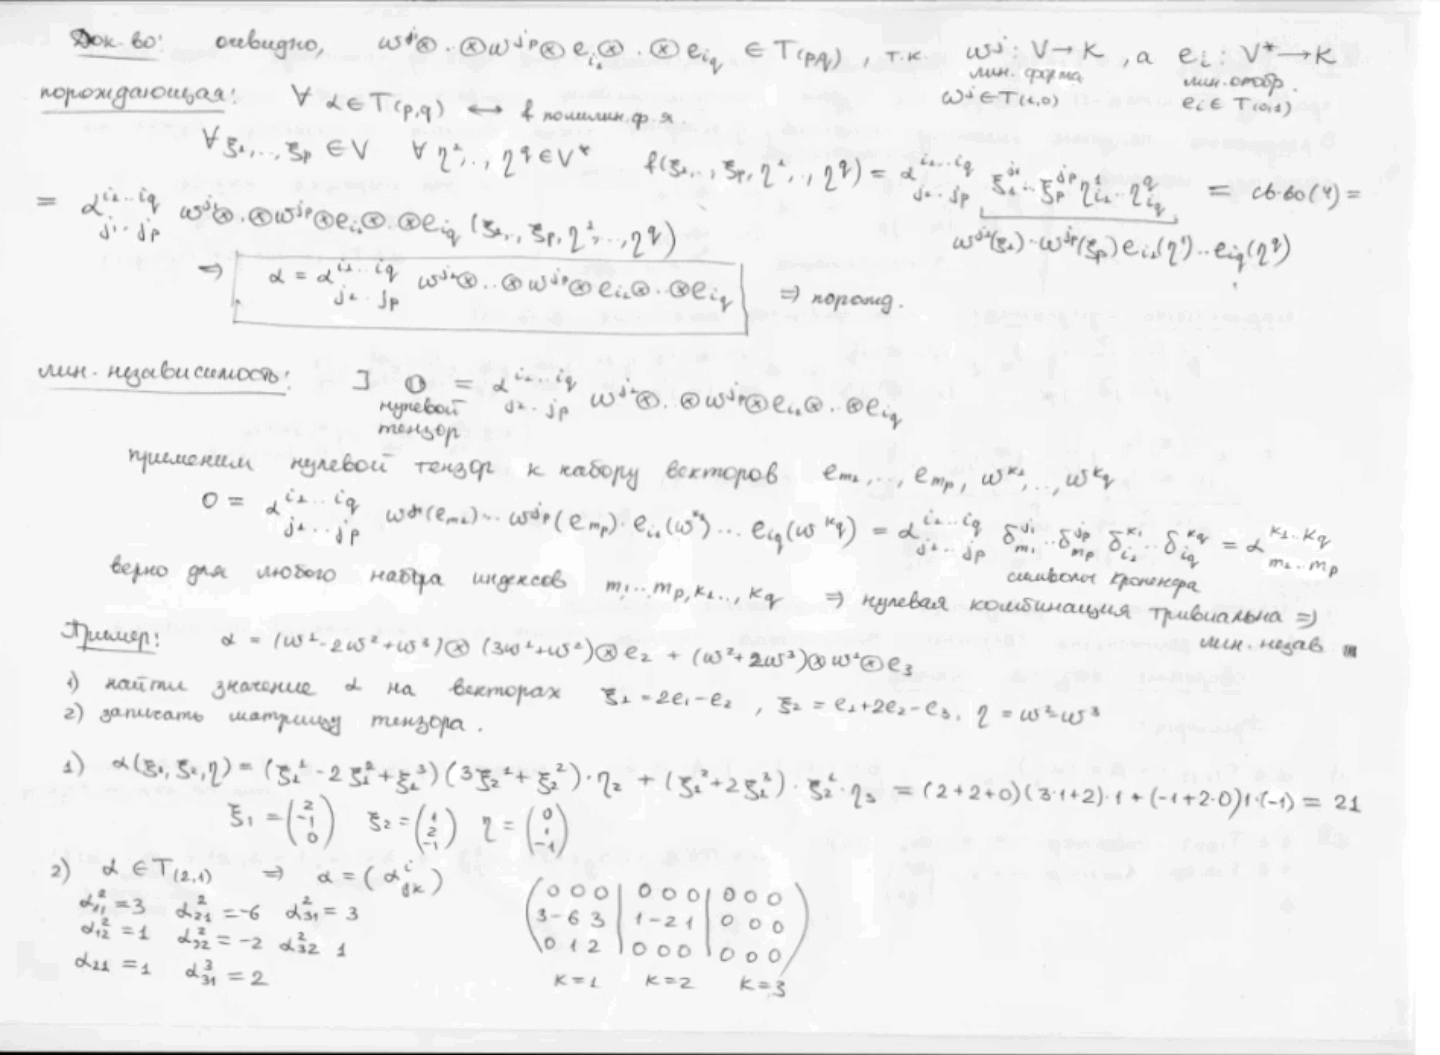 Док-во: очевидно, ω^{j₁}⊗..⊗ω^{j_p}⊗e_{i₁}⊗..⊗e_{i_q} ∈ T(p,q), т.к. ω^j: V→K, а e_i: V*→K
лин. форма лин. отобр.
ω^j∈T(1,0) e_i∈T(0,1)
порождающая: ∀ α∈T(p,q) ↔ f полилин. ф-я.
∀ ξ₁,..,ξ_p ∈V ∀ η¹,..,η^q∈V* f(ξ₁,..,ξ_p,η¹,..,η^q) = α^{i₁...i_q}_{j₁...j_p} ξ₁^{j₁}..ξ_p^{j_p}η¹_{i₁}..η^q_{i_q} = св-во(4) =
ω^{j₁}(ξ₁)..ω^{j_p}(ξ_p)e_{i₁}(η¹)...e_{i_q}(η^q)
= α^{i₁...i_q}_{j₁...j_p} ω^{j₁}⊗..⊗ω^{j_p}⊗e_{i₁}⊗..⊗e_{i_q} (ξ₁,..,ξ_p,η¹,..,η^q)
⇒ α = α^{i₁...i_q}_{j₁...j_p} ω^{j₁}⊗..⊗ω^{j_p}⊗e_{i₁}⊗..⊗e_{i_q} ⇒ порожд.
лин. независимость: ∃ 𝟘 = α^{i₁...i_q}_{j₁...j_p} ω^{j₁}⊗..⊗ω^{j_p}⊗e_{i₁}⊗..⊗e_{i_q}
нулевой
тензор
применим нулевой тензор к набору векторов e_{m₁},.., e_{m_p}, ω^{k₁},..,ω^{k_q}
0 = α^{i₁...i_q}_{j₁...j_p} ω^{j₁}(e_{m₁})...ω^{j_p}(e_{m_p})·e_{i₁}(ω^{k₁})...e_{i_q}(ω^{k_q}) = α^{i₁...i_q}_{j₁...j_p} δ^{j₁}_{m₁}..δ^{j_p}_{m_p} δ^{k₁}_{i₁}..δ^{k_q}_{i_q} = α^{k₁...k_q}_{m₁...m_p}
символы Кронекера
верно для любого набора индексов m₁...m_p,k₁..,k_q ⇒ нулевая комбинация тривиальна ⇒
лин. незав ■
Пример: α = (ω¹-2ω²+ω³)⊗(3ω¹+ω²)⊗e₂ + (ω²+2ω³)⊗ω¹⊗e₃
1) найти значение α на векторах ξ₁=2e₁-e₂, ξ₂=e₁+2e₂-e₃, η=ω²-ω³
2) записать матрицу тензора.
1) α(ξ₁,ξ₂,η) = (ξ₁¹-2ξ₁²+ξ₁³)(3ξ₂¹+ξ₂²)·η₂ + (ξ₁²+2ξ₁³)·ξ₂¹·η₃ = (2+2+0)(3·1+2)·1+(-1+2·0)1·(-1) = 21
ξ₁ = (2 -1 0) ξ₂ = (1 2 -1) η = (0 1 -1)
2) α ∈ T(2,1) ⇒ α = (α^i_{jk})
α²₁₁=3 α²₂₁=-6 α²₃₁=3
α²₁₂=1 α²₂₂=-2 α²₃₂ 1
α₂₁=1 α³₃₁=2
(0 0 0 | 0 0 0 | 0 0 0
3 -6 3 | 1 -2 1 | 0 0 0
0 1 2 | 0 0 0 | 0 0 0)
k=1 k=2 k=3